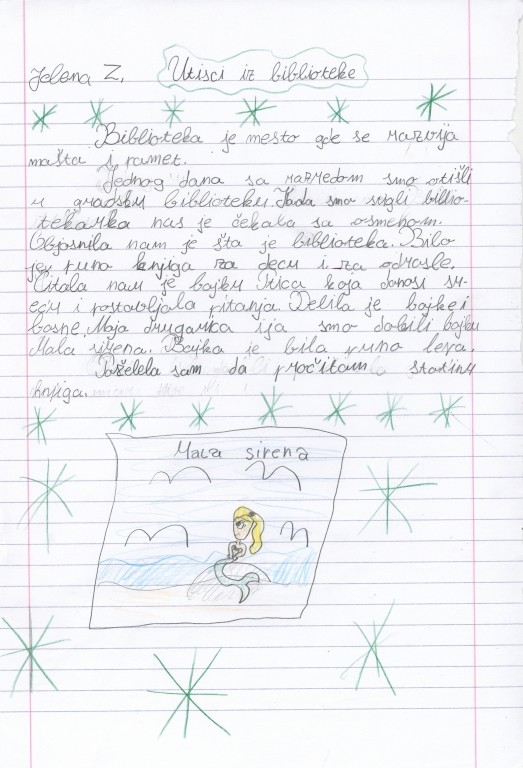 Jelena Z. Utisci iz biblioteke
Biblioteka je mesto gde se razvija
mašta i pamet.
Jednog dana sa razredom smo otišli
u gradsku biblioteku. Kada smo stigli bibliо-
tekarka nas je čekala sa osmehom.
Objasnila nam je šta je biblioteka. Bilo
je puno knjiga za decu i za odrasle.
Čitala nam je bajku Ptica koja donosi sr-
eću i postavljala pitanja. Delila je bajke i
basne. Moja drugarica i ja smo dobili bajku
Mala sirena. Bajka je bila puno lepa.
Poželela sam da pročitam stotinu
knjiga.
Mala sirena